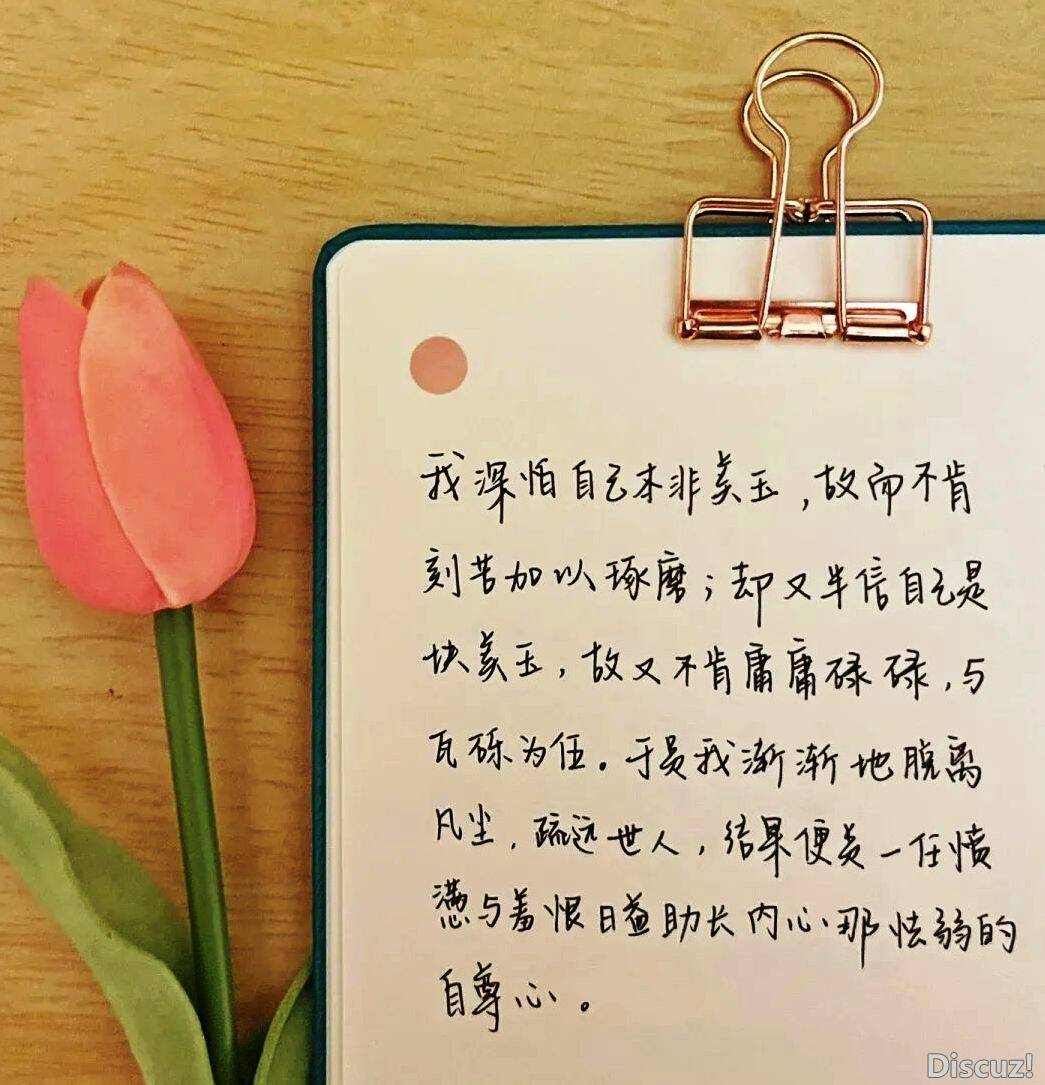 我深怕自己本非美玉，故而不肯
刻苦加以琢磨；却又半信自己是
块美玉，故又不肯庸庸碌碌，与
瓦砾为伍。于是我渐渐地脱离
凡尘，疏远世人，结果便是一任愤
懑与羞恨日益助长内心那怯弱的
自尊心。
Discuz!